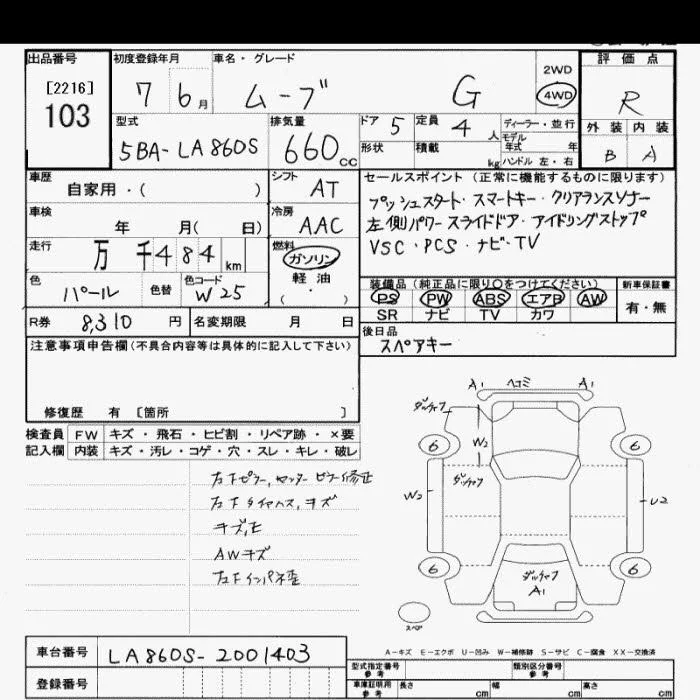 出品番号
[2216]
103
初度登録年月
7 6月
車名・グレード
ムーブ G
2WD
4WD
評価点
R
外装 内装
B A
型式
5BA-LA860S
排気量
660cc
ドア 5
定員 4人
ディーラー・並行
モデル
年式 年
形状
積載 kg
ハンドル 左・右
車歴
自家用・( )
シフト
AT
セールスポイント(正常に機能するものに限ります)
プッシュスタート・スマートキー・クリアランスソナー
左側パワースライドドア・アイドリングストップ
VSC・PCS・ナビ・TV
車検
年 月( 日)
冷房
AAC
走行
万 千484km
燃料
ガソリン
軽油
( ・ )
色
パール
色替
色コード
W25
装備品(純正品に限り○をつけてください)
PS PW ABS エアB AW
SR ナビ TV カワ
新車保証書
有・無
R券 8,310円
名変期限 月 日
後日品
スペアキー
注意事項申告欄(不具合内容等は具体的に記入して下さい)
修復歴 有 [箇所 ]
検査員 FW キズ・飛石・ヒビ割・リペア跡・×要
記入欄 内装 キズ・汚レ・コゲ・穴・スレ・キレ・破レ
右下ピラー,センターピラー修正
キズ,モ
AWキズ
A1 ヘコミ A1
W2
6 6
W2 U2
6 6
A1
スペア
A-キズ E-エクボ U-凹み W-補修跡 S-サビ C-腐食 XX-交換済
車台番号 LA860S-2001403
登録番号
型式指定番号
参考
類別区分番号
参考
車庫証明用
参考
長さ cm 幅 cm 高さ cm